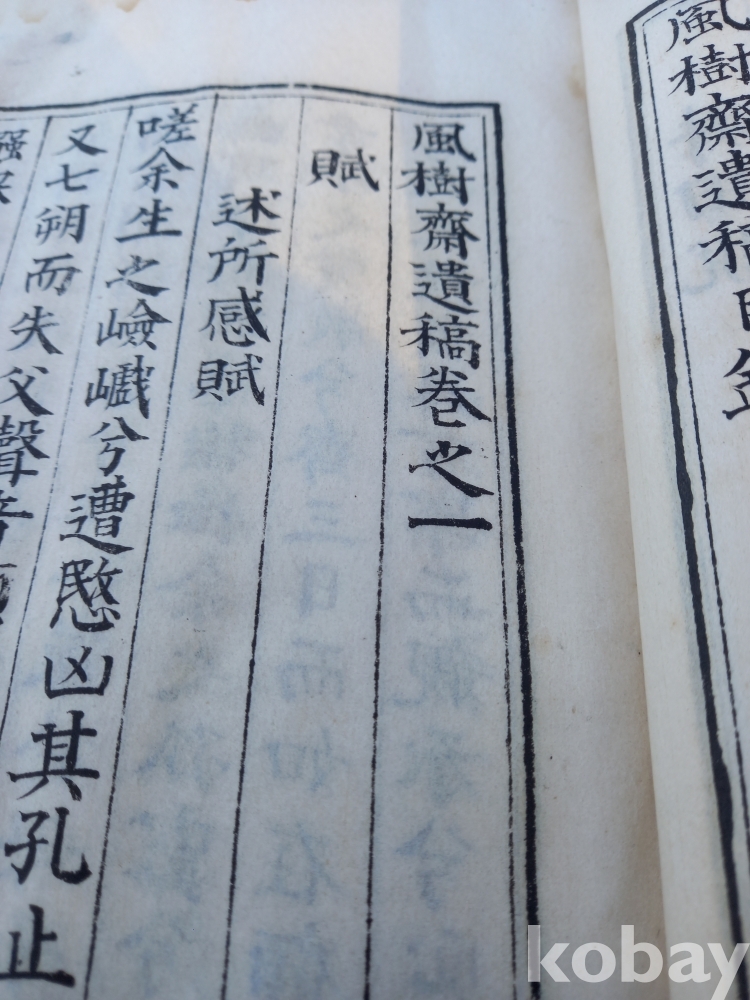 風樹齋遺稿目
風樹齋遺稿卷之一
賦
述所感賦
嗟余生之嶮巇兮遭愍凶其孔止
又七朔而失父聲音
kobay